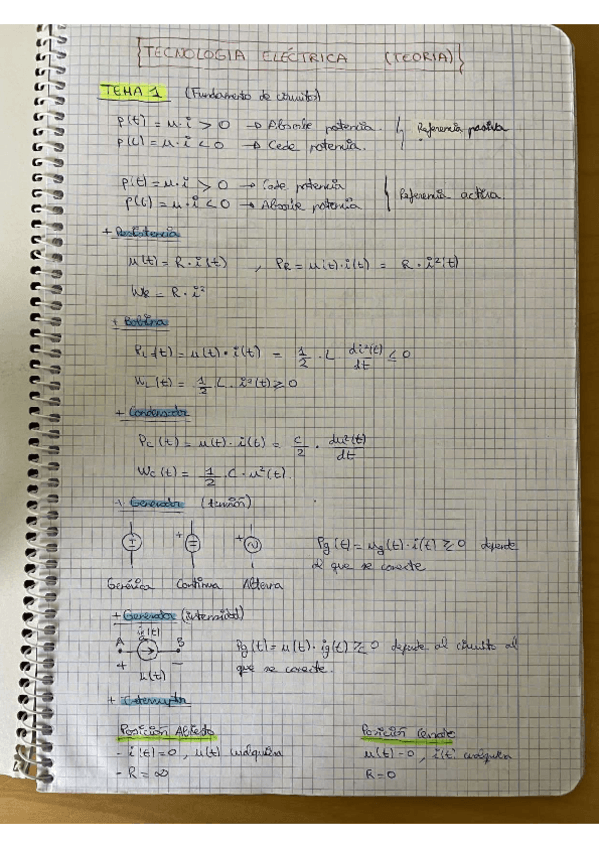 TECNOLOGIA ELÉCTRICA (TEORIA)
TEMA 1 (Fundamento de circuitos)
p(t) = u·i > 0 → Absorbe potencia.
p(t) = u·i < 0 → Cede potencia.
Referencia pasiva
p(t) = u·i > 0 → Cede potencia
p(t) = u·i < 0 → Absorbe potencia
Referencia activa.
+ Resistencia
u(t) = R·i(t) , PR = u(t)·i(t) = R·i²(t)
WR = R·i²
+ Bobina
PL(t) = u(t)·i(t) = 1/2 · L di²(t)/dt ≤ 0
WL(t) = 1/2 L·i²(t) ≥ 0
+ Condensador
Pc(t) = u(t)·i(t) = C/2 · du²(t)/dt
Wc(t) = 1/2 · C · u²(t).
+ Generador (tensión)
+ +
Genérica Continua Alterna
Pg(t) = ug(t)·i(t) ≥ 0 depende
al que se conecte
+ Generador (intensidad)
ig(t)
A B
+ −
u(t)
Pg(t) = u(t)·ig(t) ≥ 0 depende al circuito al
que se conecte.
+ Interruptor
Posición Abierto
- i(t) = 0 , u(t) cualquiera
- R = ∞
Posición Cerrado
u(t) = 0 , i(t) cualquiera
R = 0